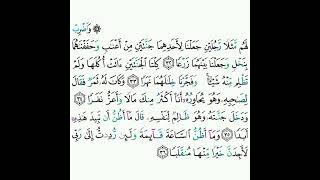 ۞ وَٱضْرِبْ
لَهُم مَّثَلًا رَّجُلَيْنِ جَعَلْنَا لِأَحَدِهِمَا جَنَّتَيْنِ مِنْ أَعْنَٰبٍ وَحَفَفْنَٰهُمَا
بِنَخْلٍ وَجَعَلْنَا بَيْنَهُمَا زَرْعًا ٣٢ كِلْتَا ٱلْجَنَّتَيْنِ ءَاتَتْ أُكُلَهَا وَلَمْ
تَظْلِم مِّنْهُ شَيْـًٔا وَفَجَّرْنَا خِلَٰلَهُمَا نَهَرًا ٣٣ وَكَانَ لَهُۥ ثَمَرٌ فَقَالَ
لِصَٰحِبِهِۦ وَهُوَ يُحَاوِرُهُۥٓ أَنَا۠ أَكْثَرُ مِنكَ مَالًا وَأَعَزُّ نَفَرًا ٣٤
وَدَخَلَ جَنَّتَهُۥ وَهُوَ ظَالِمٌ لِّنَفْسِهِۦ قَالَ مَآ أَظُنُّ أَن تَبِيدَ هَٰذِهِۦٓ
أَبَدًا ٣٥ وَمَآ أَظُنُّ ٱلسَّاعَةَ قَآئِمَةً وَلَئِن رُّدِدتُّ إِلَىٰ رَبِّى
لَأَجِدَنَّ خَيْرًا مِّنْهَا مُنقَلَبًا ٣٦